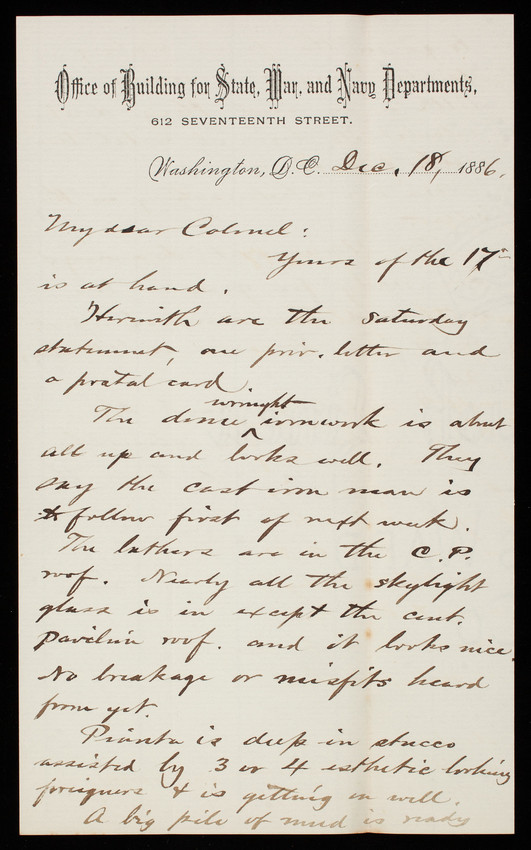 Office of Building for State, War, and Navy Departments,
612 SEVENTEENTH STREET.
Washington, D.C. Dec. 18, 1886.
My dear Colonel:
Yours of the 17th
is at hand.
Herewith are the Saturday
statement, one priv. letter and
a postal card.
wrought
The dome ironwork is about
all up and looks well. They
say the cast iron man is
to follow first of next week.
The lathers are in the C.P.
roof. Nearly all the skylight
glass is in except the cent.
pavilion roof. and it looks nice.
No breakage or misfits heard
from yet.
Pianta is deep in stucco
assisted by 3 or 4 esthetic looking
foreigners & is getting on well.
A big pile of mud is ready